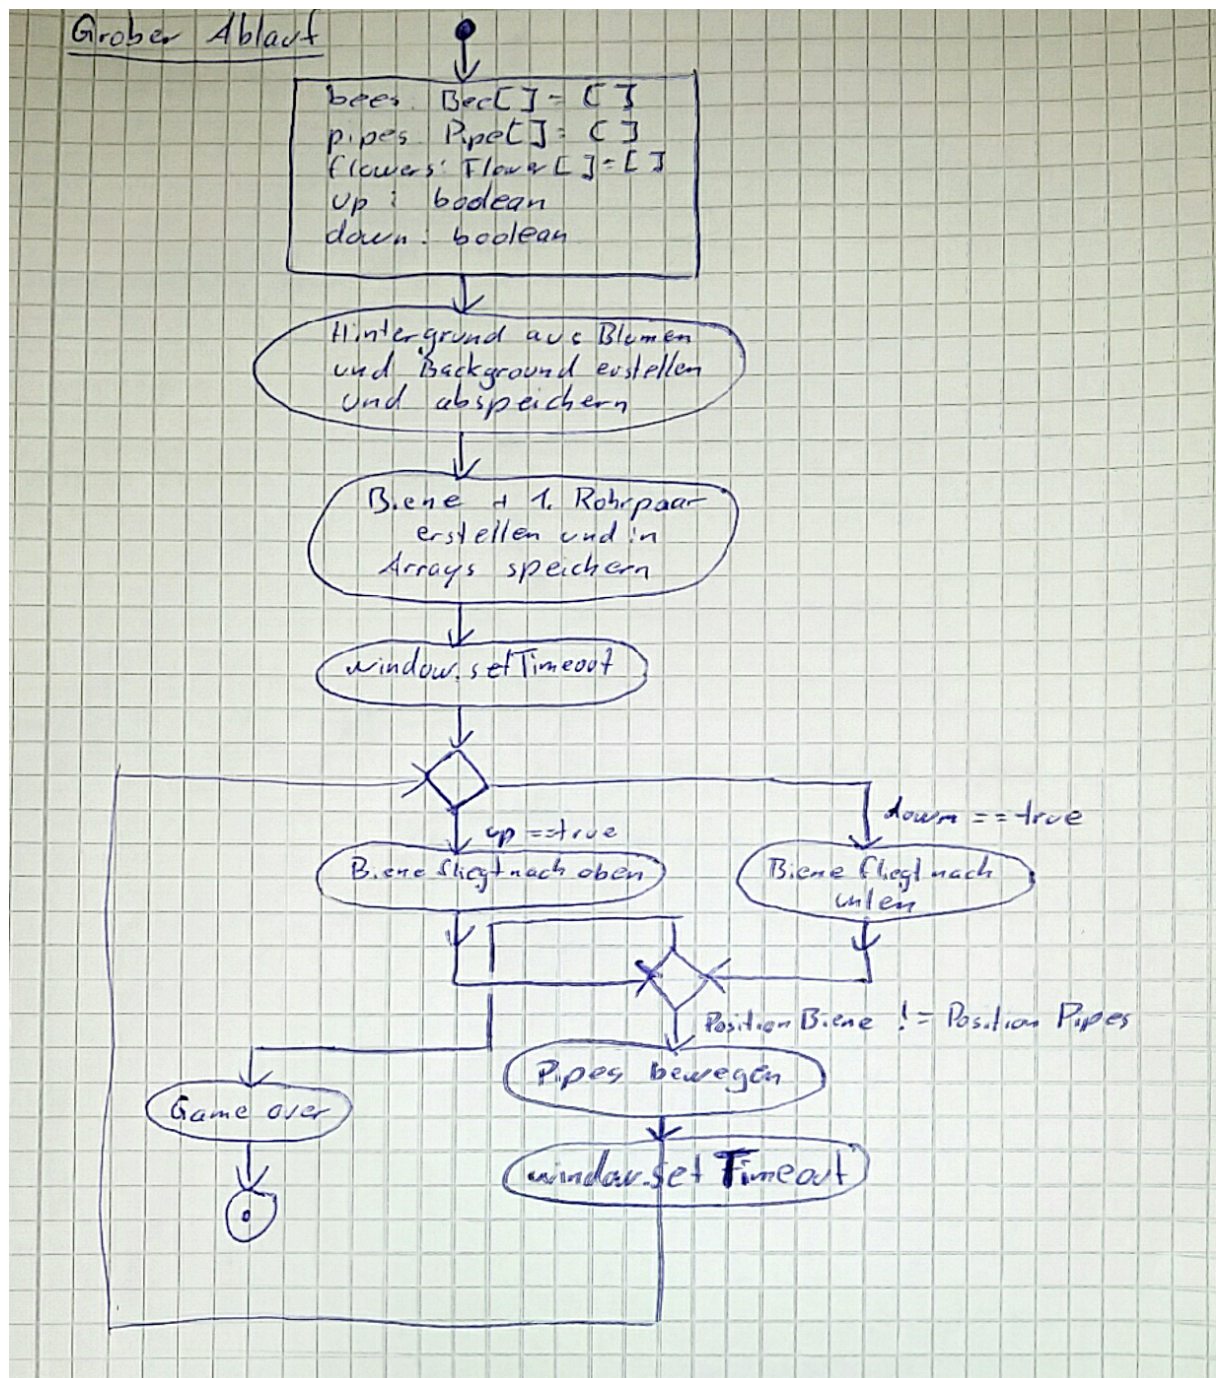 Grober Ablauf
bees: Bee[] = []
pipes: Pipe[] = []
flowers: Flower[] = []
up : boolean
down : boolean
Hintergrund aus Blumen
und Background erstellen
und abspeichern
Biene + 1. Rohrpaar
erstellen und in
Arrays speichern
window.setTimeout
down == true
up == true
Biene fliegt nach oben
Biene fliegt nach
unten
Position Biene != Position Pipes
Pipes bewegen
Game over
window.set Timeout